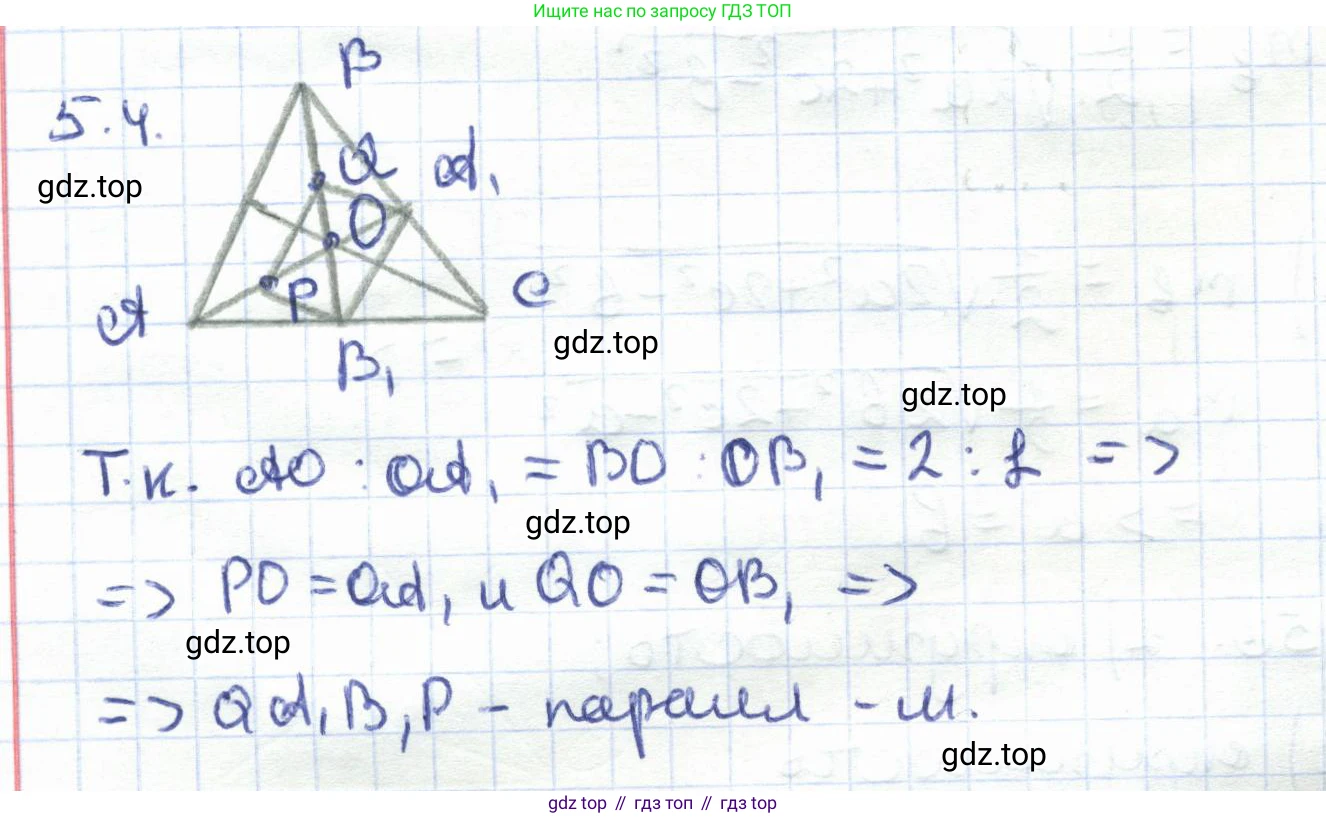 Ищите нас по запросу ГДЗ ТОП
B
5.4.
Q A₁
gdz.top
O
P C
A
gdz.top
B₁
gdz.top
Т.к. AO : OA₁ = BO : OB₁ = 2 : 1 =>
gdz.top
=> PO = OA₁ и QO = OB₁ =>
gdz.top
=> QA₁B₁P - паралл-м.
gdz.top
gdz top // гдз топ // gdz top